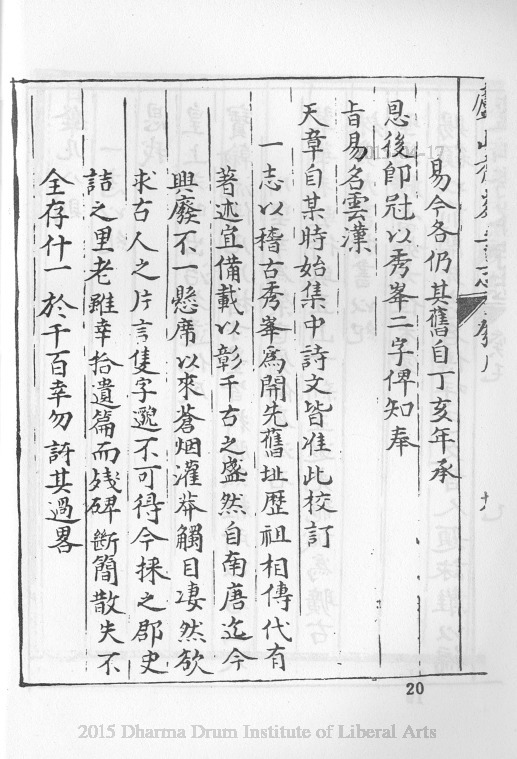 易今各仍其舊自丁亥年承
恩後卽冠以秀峯二字俾知奉
旨易名雲漢
天章自某時始集中詩文皆准此校訂
一志以稽古秀峯爲開先舊址歷祖相傳代有
著述宜備載以彰千古之盛然自南唐迄今
興廢不一懸席以來蒼烟灌莽觸目凄然欲
求古人之片言隻字邈不可得今採之郡史
詰之里老雖幸拾遺篇而殘碑斷簡散失不
全存什一於千百幸勿訝其過畧
20
2015 Dharma Drum Institute of Liberal Arts